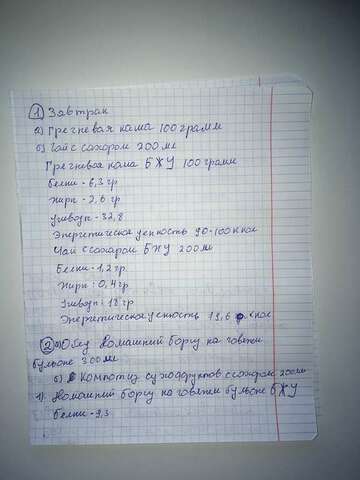 1) Завтрак
а) Гречневая каша 100 грамм
б) Чай с сахаром 200 мл
Гречневая каша БЖУ 100 грамм
Белки - 6,3 гр
Жиры - 2,6 гр
Углеводы - 32,8
Энергетическая ценность 90-100 ккал
Чай с сахаром БЖУ 200 мл
Белки - 1,2 гр.
Жиры: 0,4 гр.
Углеводы: 18 гр
Энергетическая ценность ккал
2) Обед Домашний борщ на говяжи
бульоне 300 мл
б) Компот из сухофруктов с сахаром 200 мл
1). Домашний борщ на говяжи бульоне БЖУ
Белки - 9,3